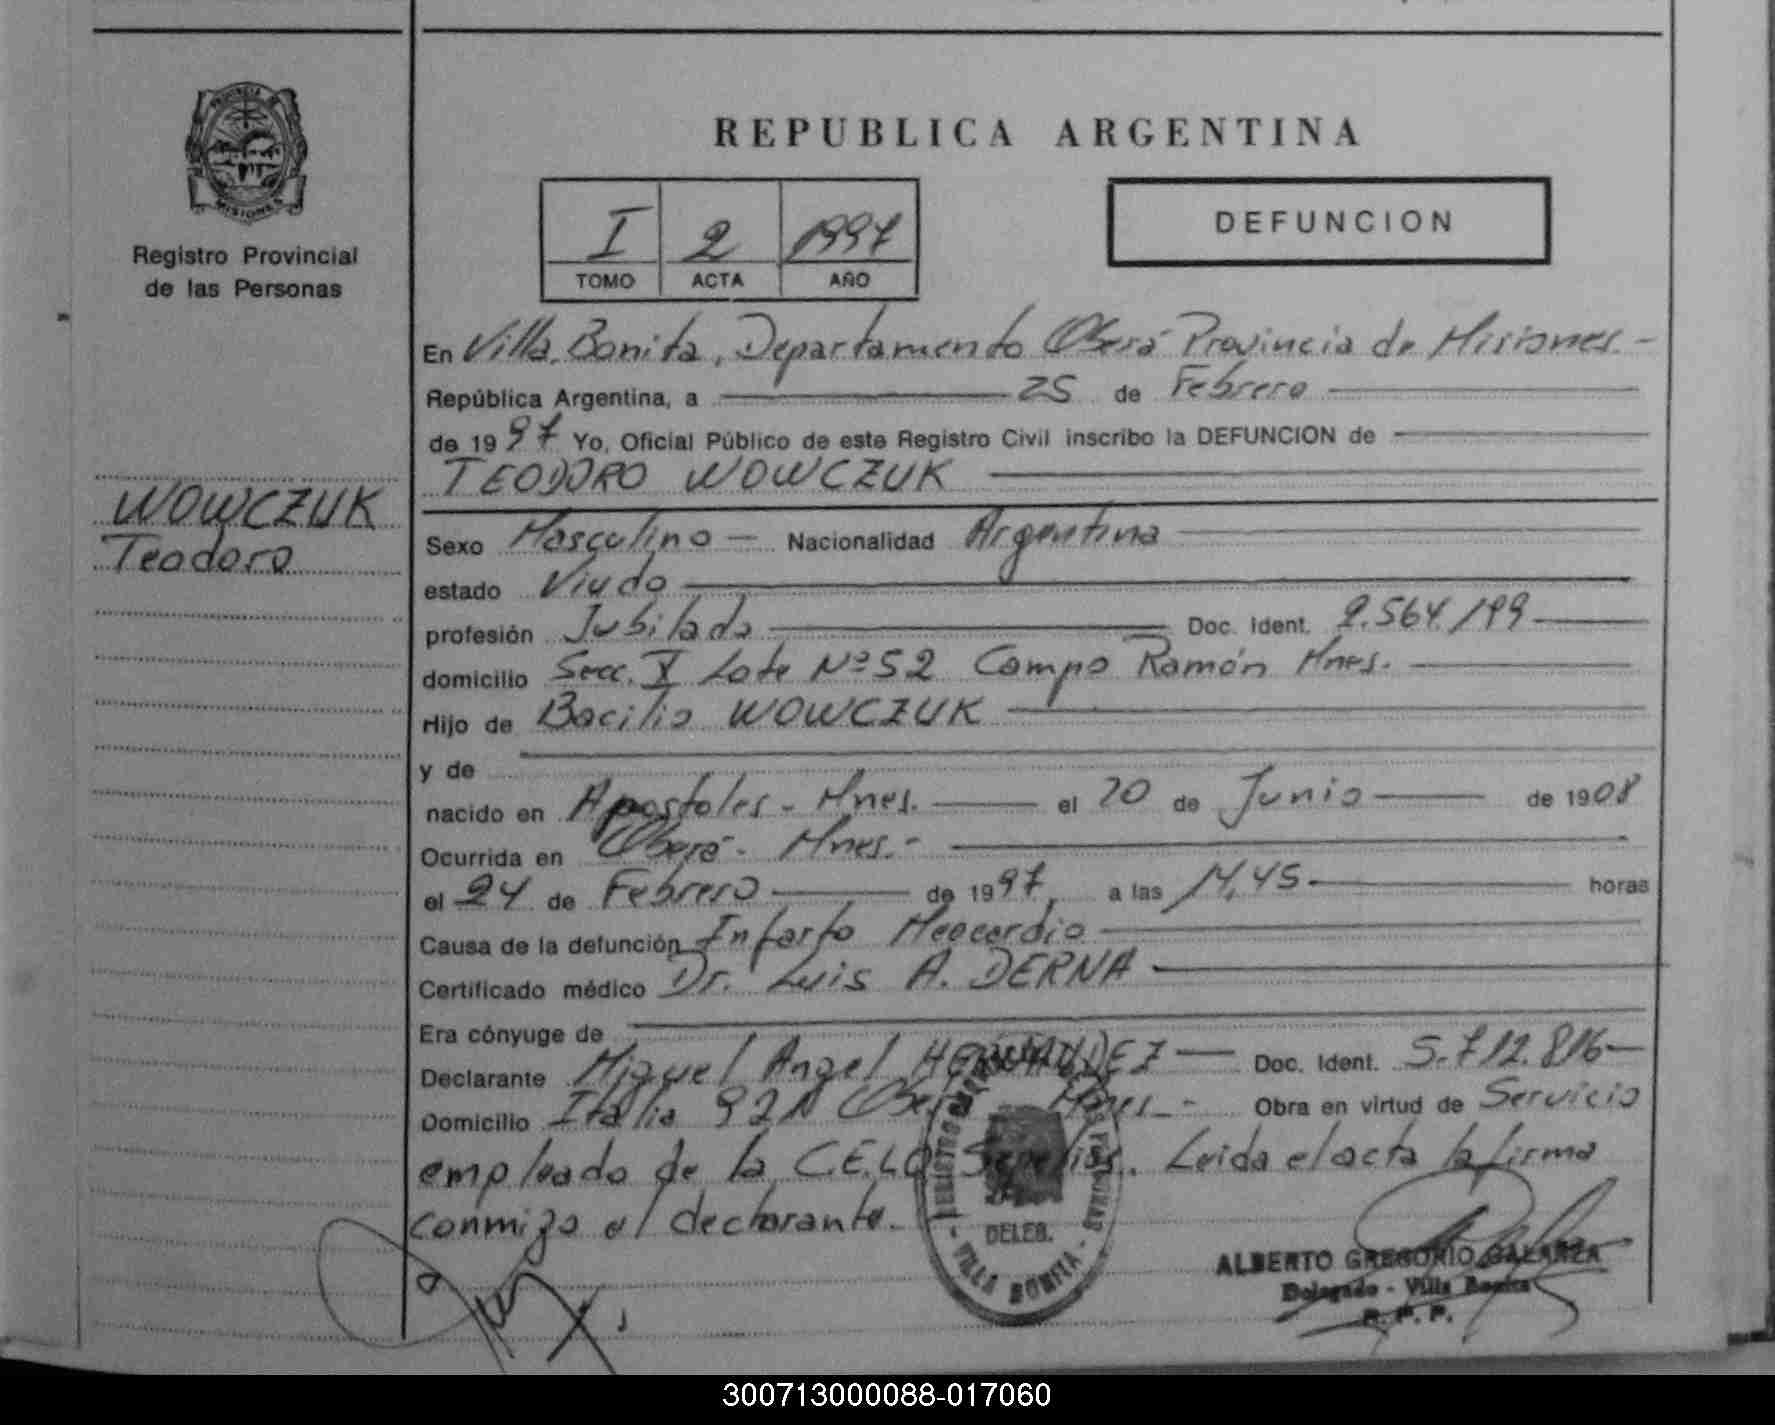 PROVINCIA DE
MISIONES
Registro Provincial
de las Personas
WOWCZUK
Teodoro
REPUBLICA ARGENTINA
I 2 1997
TOMO ACTA AÑO
DEFUNCION
En Villa Bonita, Departamento Oberá Provincia de Misiones.-
República Argentina, a 25 de Febrero
de 1997 Yo, Oficial Público de este Registro Civil inscribo la DEFUNCION de
TEODORO WOWCZUK
Sexo Masculino - Nacionalidad Argentina
estado Viudo
profesión Jubilado Doc. Ident. 2.564.199
domicilio Secc. V Lote Nº 52 Campo Ramón Mnes.
Hijo de Bacilio WOWCZUK
y de
nacido en Apostoles - Mnes. el 20 de Junio de 1908
Ocurrida en Oberá - Mnes.-
el 24 de Febrero de 1997 a las 14,45 horas
Causa de la defunción Infarto Meocardio
Certificado médico Dr. Luis A. DERNA
Era cónyuge de
Declarante Miguel Angel HERNANDEZ Doc. Ident. 5.712.816
Domicilio Italia 921 Oberá Mnes.- Obra en virtud de Servicio
empleado de la C.E.L.O. Sepelios. Leida el acta la firma
conmigo el declarante.
DELEG.
VILLA BONITA
ALBERTO GREGORIO GALARZA
Delegado - Villa Bonita
R. P. P.
300713000088-017060